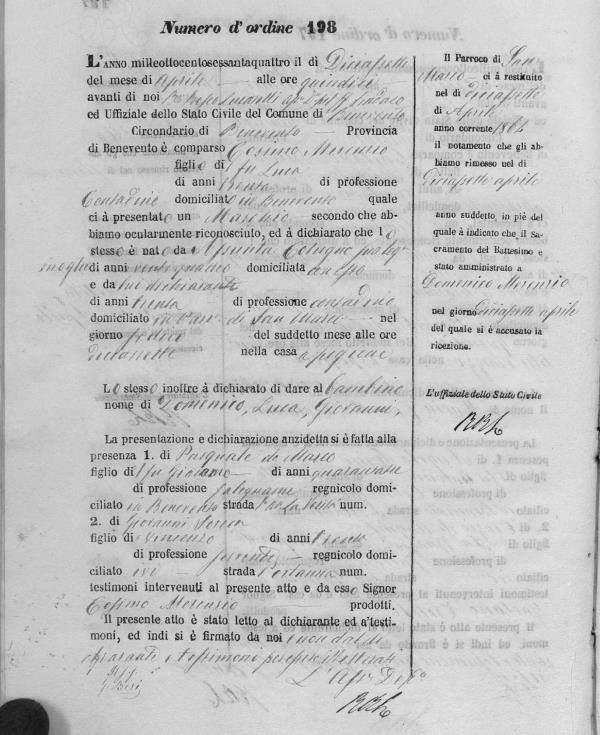 Numero d'ordine 198
L'ANNO milleottocentosessantaquattro il dì Diciasette
del mese di Aprile — alle ore quindici
avanti di noi
ed Uffiziale dello Stato Civile del Comune di Benevento
Circondario di Benevento — Provincia
di Benevento è comparso Cosimo Mercurio
figlio di fu Luca
di anni trenta di professione
Contadino domiciliato in Benevento quale
ci à presentato un Maschio secondo che ab-
biamo ocularmente riconosciuto, ed à dichiarato che lo
stesso è nato da Assunta Cotugno
moglie di anni ventiquattro domiciliata con esso
e da lui dichiarante
di anni trenta di professione contadino
domiciliato di San Marco — nel
giorno sedici del suddetto mese alle ore
diciassette nella casa a pigione
Lo stesso inoltre à dichiarato di dare al bambino
nome di Domenico, Luca, Giovanni,
La presentazione e dichiarazione anzidetta si è fatta alla
presenza 1. di Pasquale de Marco
figlio di fu Girolamo — di anni
di professione falegname regnicolo domi-
ciliato in Benevento strada num.
2. di Giovanni
figlio di Vincenzo di anni trenta
di professione — regnicolo domi-
ciliato ivi — strada Portanna num.
testimoni intervenuti al presente atto e da esso Signor
Cosimo Mercurio prodotti.
Il presente atto è stato letto al dichiarante ed a'testi-
moni, ed indi si è firmato da noi
Il Parroco di San
Marco — ci à restituito
nel dì diciasette
di Aprile
anno corrente 1864
il notamento che gli ab-
biamo rimesso nel dì
Diciasette aprile
anno suddetto, in piè del
quale à indicato che il Sa-
cramento del Battesimo e
stato amministrato a
Domenico Mercurio
nel giorno Diciasette aprile
del quale si é accusato la
ricezione.
L'uffiziale dello Stato Civile